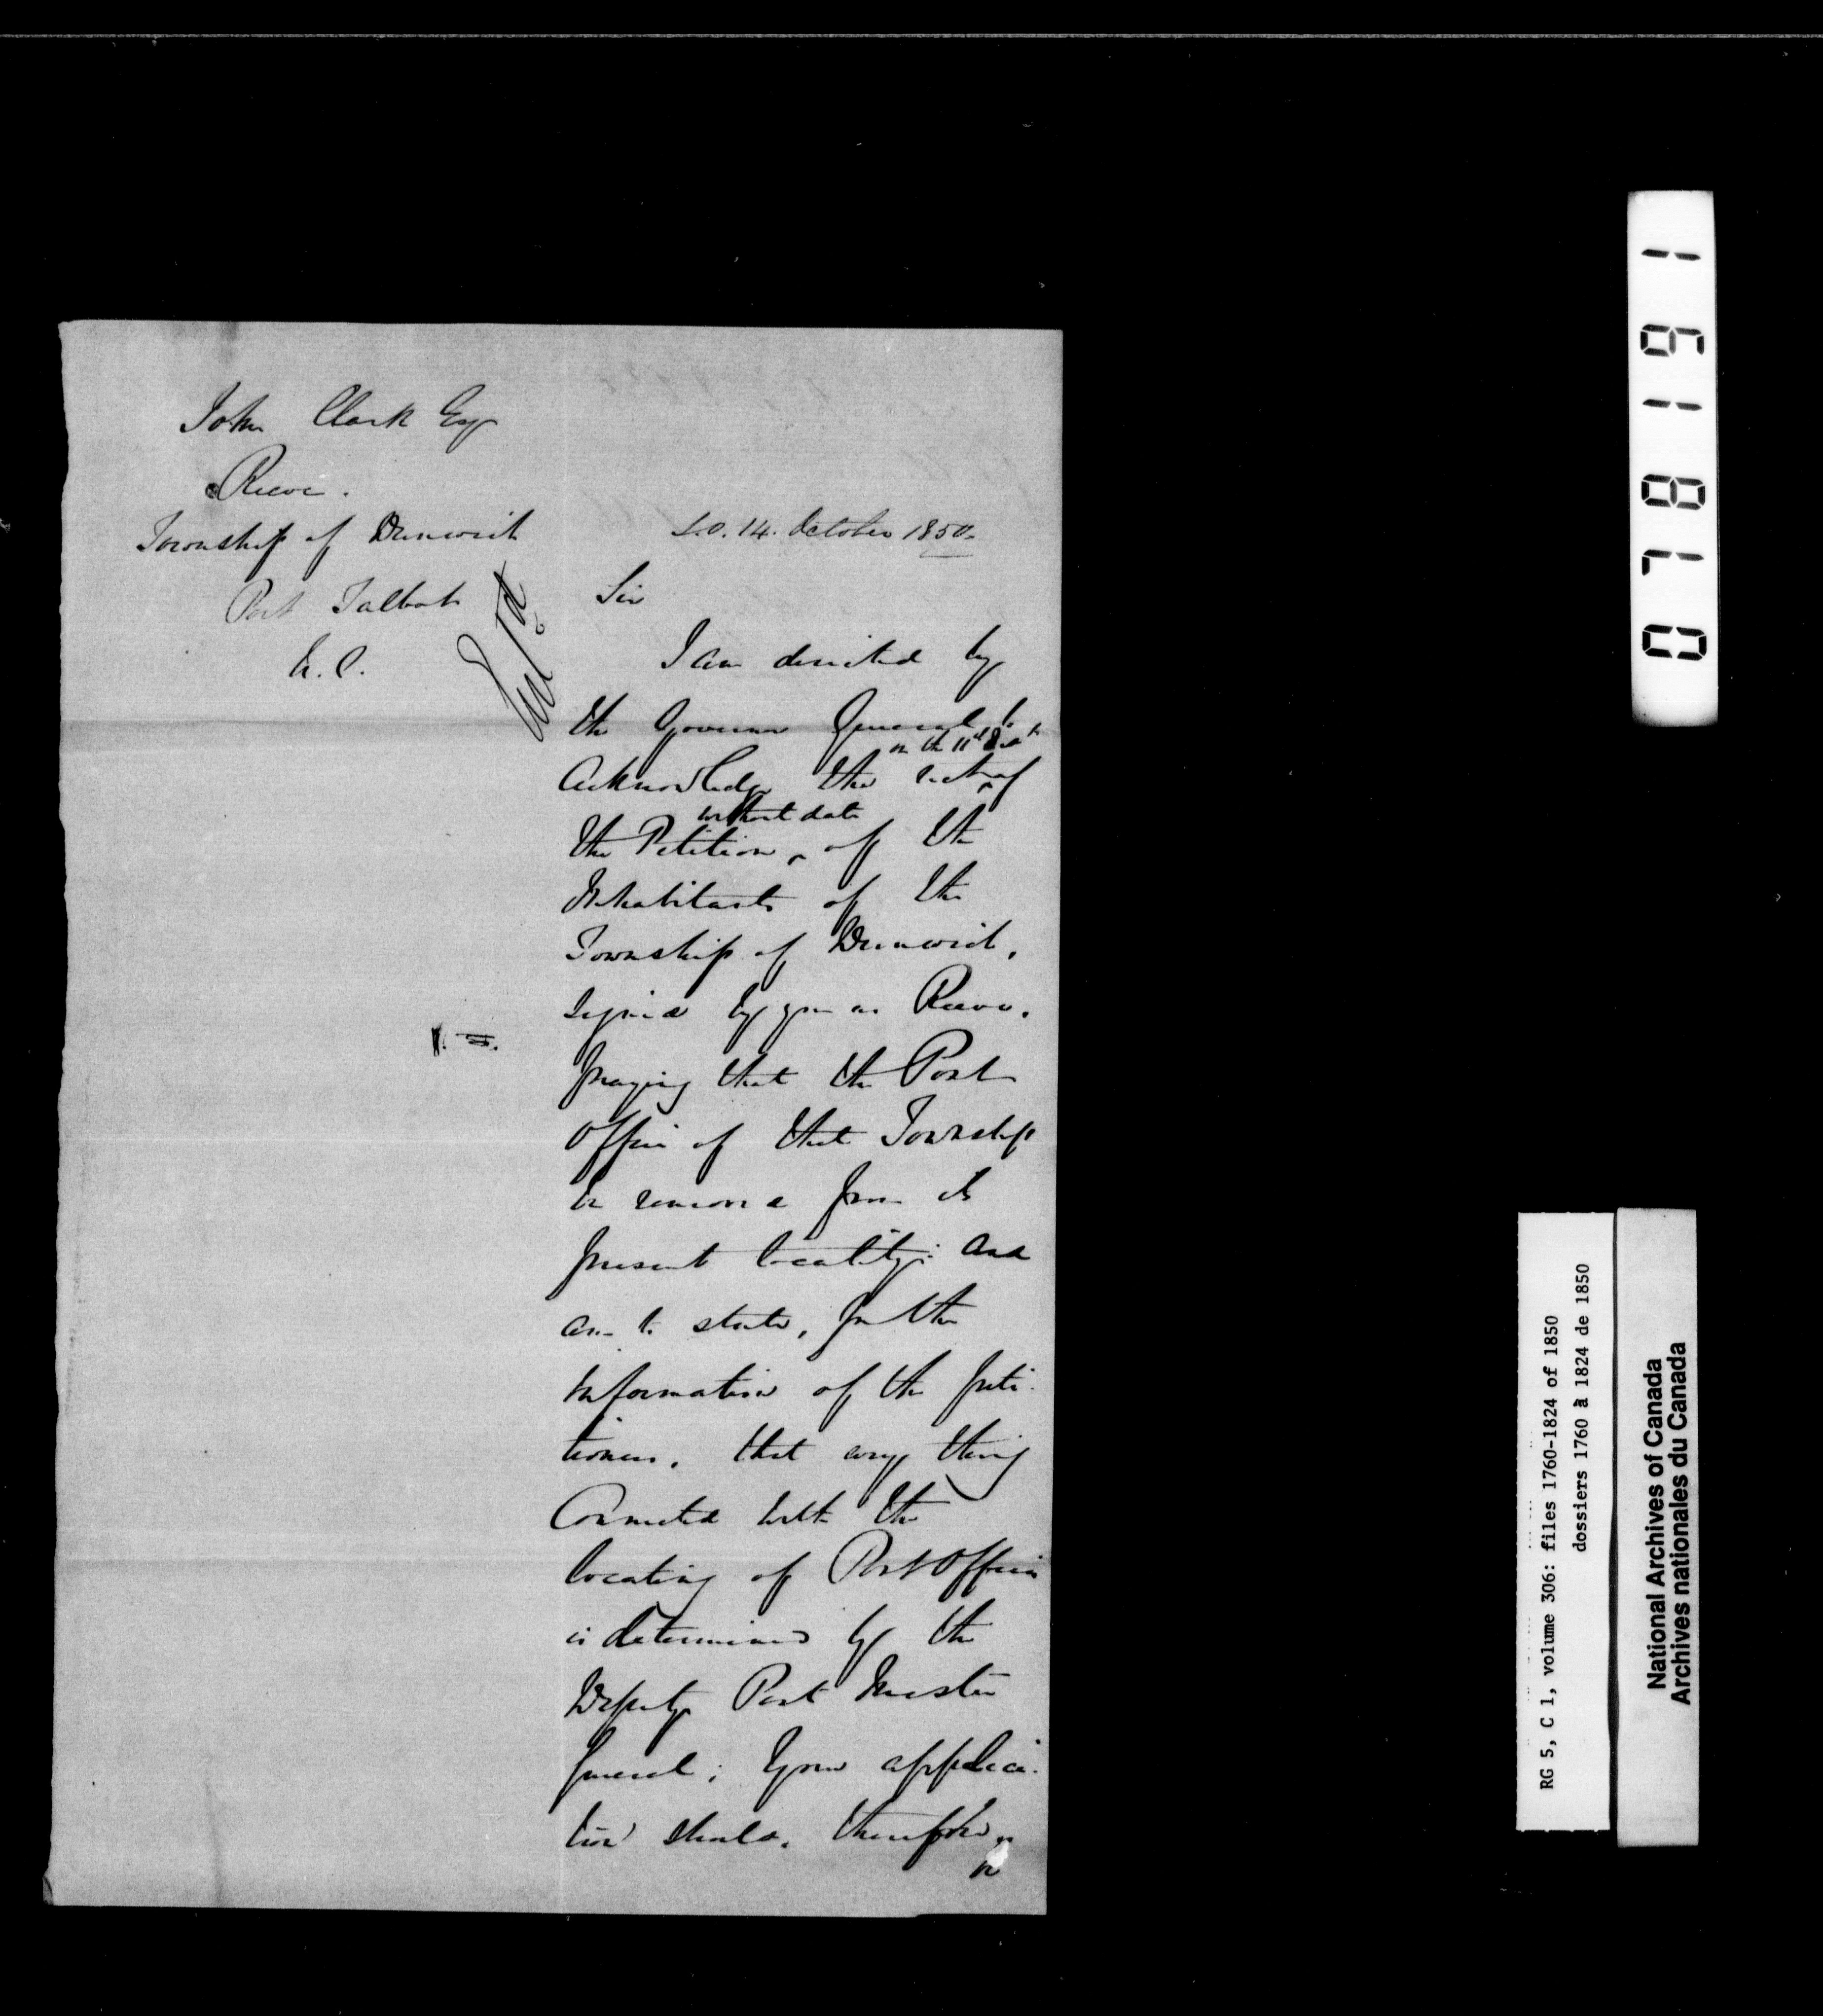 John Clark Esq
Reeve.
Township of Dunwich
Port Talbot
S.O. 14. October 1850.
Sir
I am directed by
the Governor General to
on the 11th Inst
Acknowledge the rect of
without date
the Petition, of the
Inhabitants of the
Township of Dunwich,
signed by you as Reeve,
praying that the Post
Office of that Township
be removed from its
present locality: and
am to state, for the
information of the peti-
tioners, that every thing
Connected with the
locating of Post Offices
is determined by the
Deputy Post Master
General; & your applica-
tion should, therefore,
07 81 61
RG 5, C 1, volume 306: files 1760-1824 of 1850
dossiers 1760 à 1824 de 1850
National Archives of Canada
Archives nationales du Canada